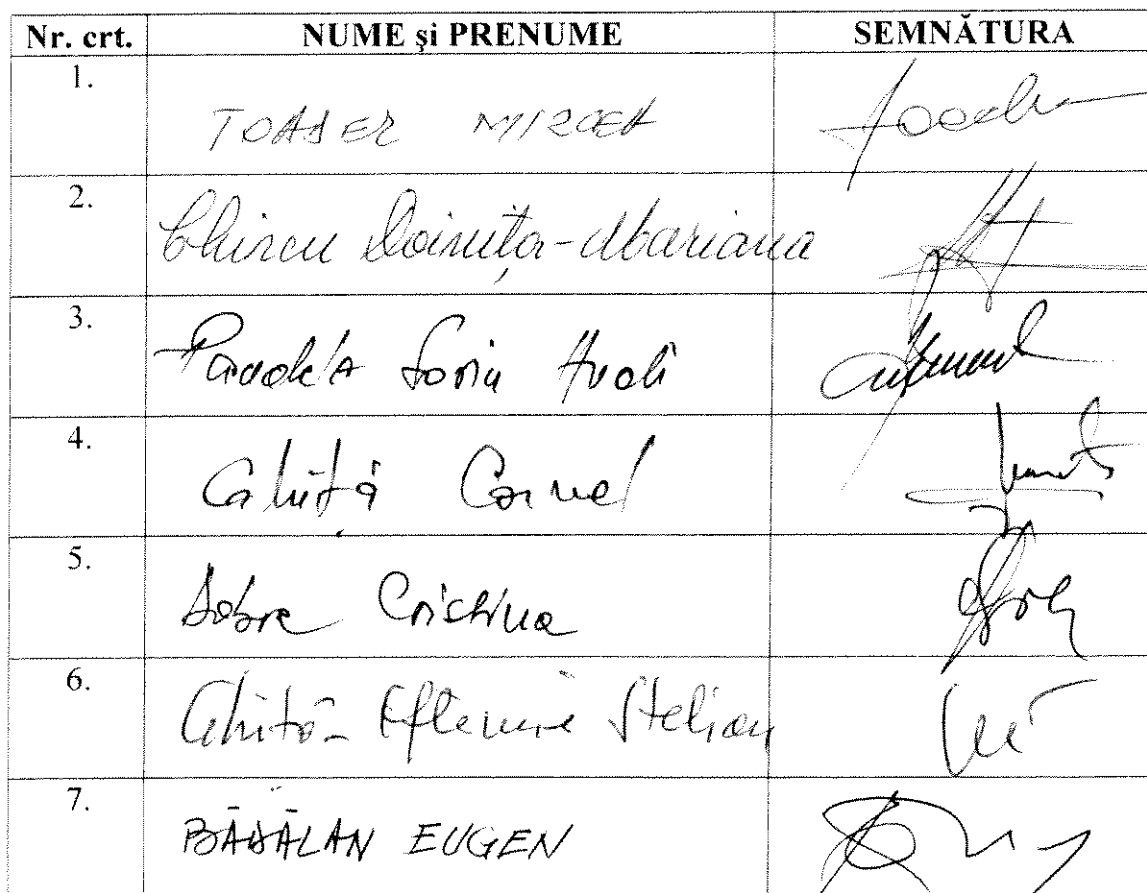 Nr. crt. NUME și PRENUME SEMNĂTURA
1. TOADER MIRCEA
2. Chircu Doinița-Mariana
3. Sorin
4. Ghiță Cornel
5. Dobre Cristina
6. Ghiță-Eftemie Stelian
7. BĂDĂLAN EUGEN